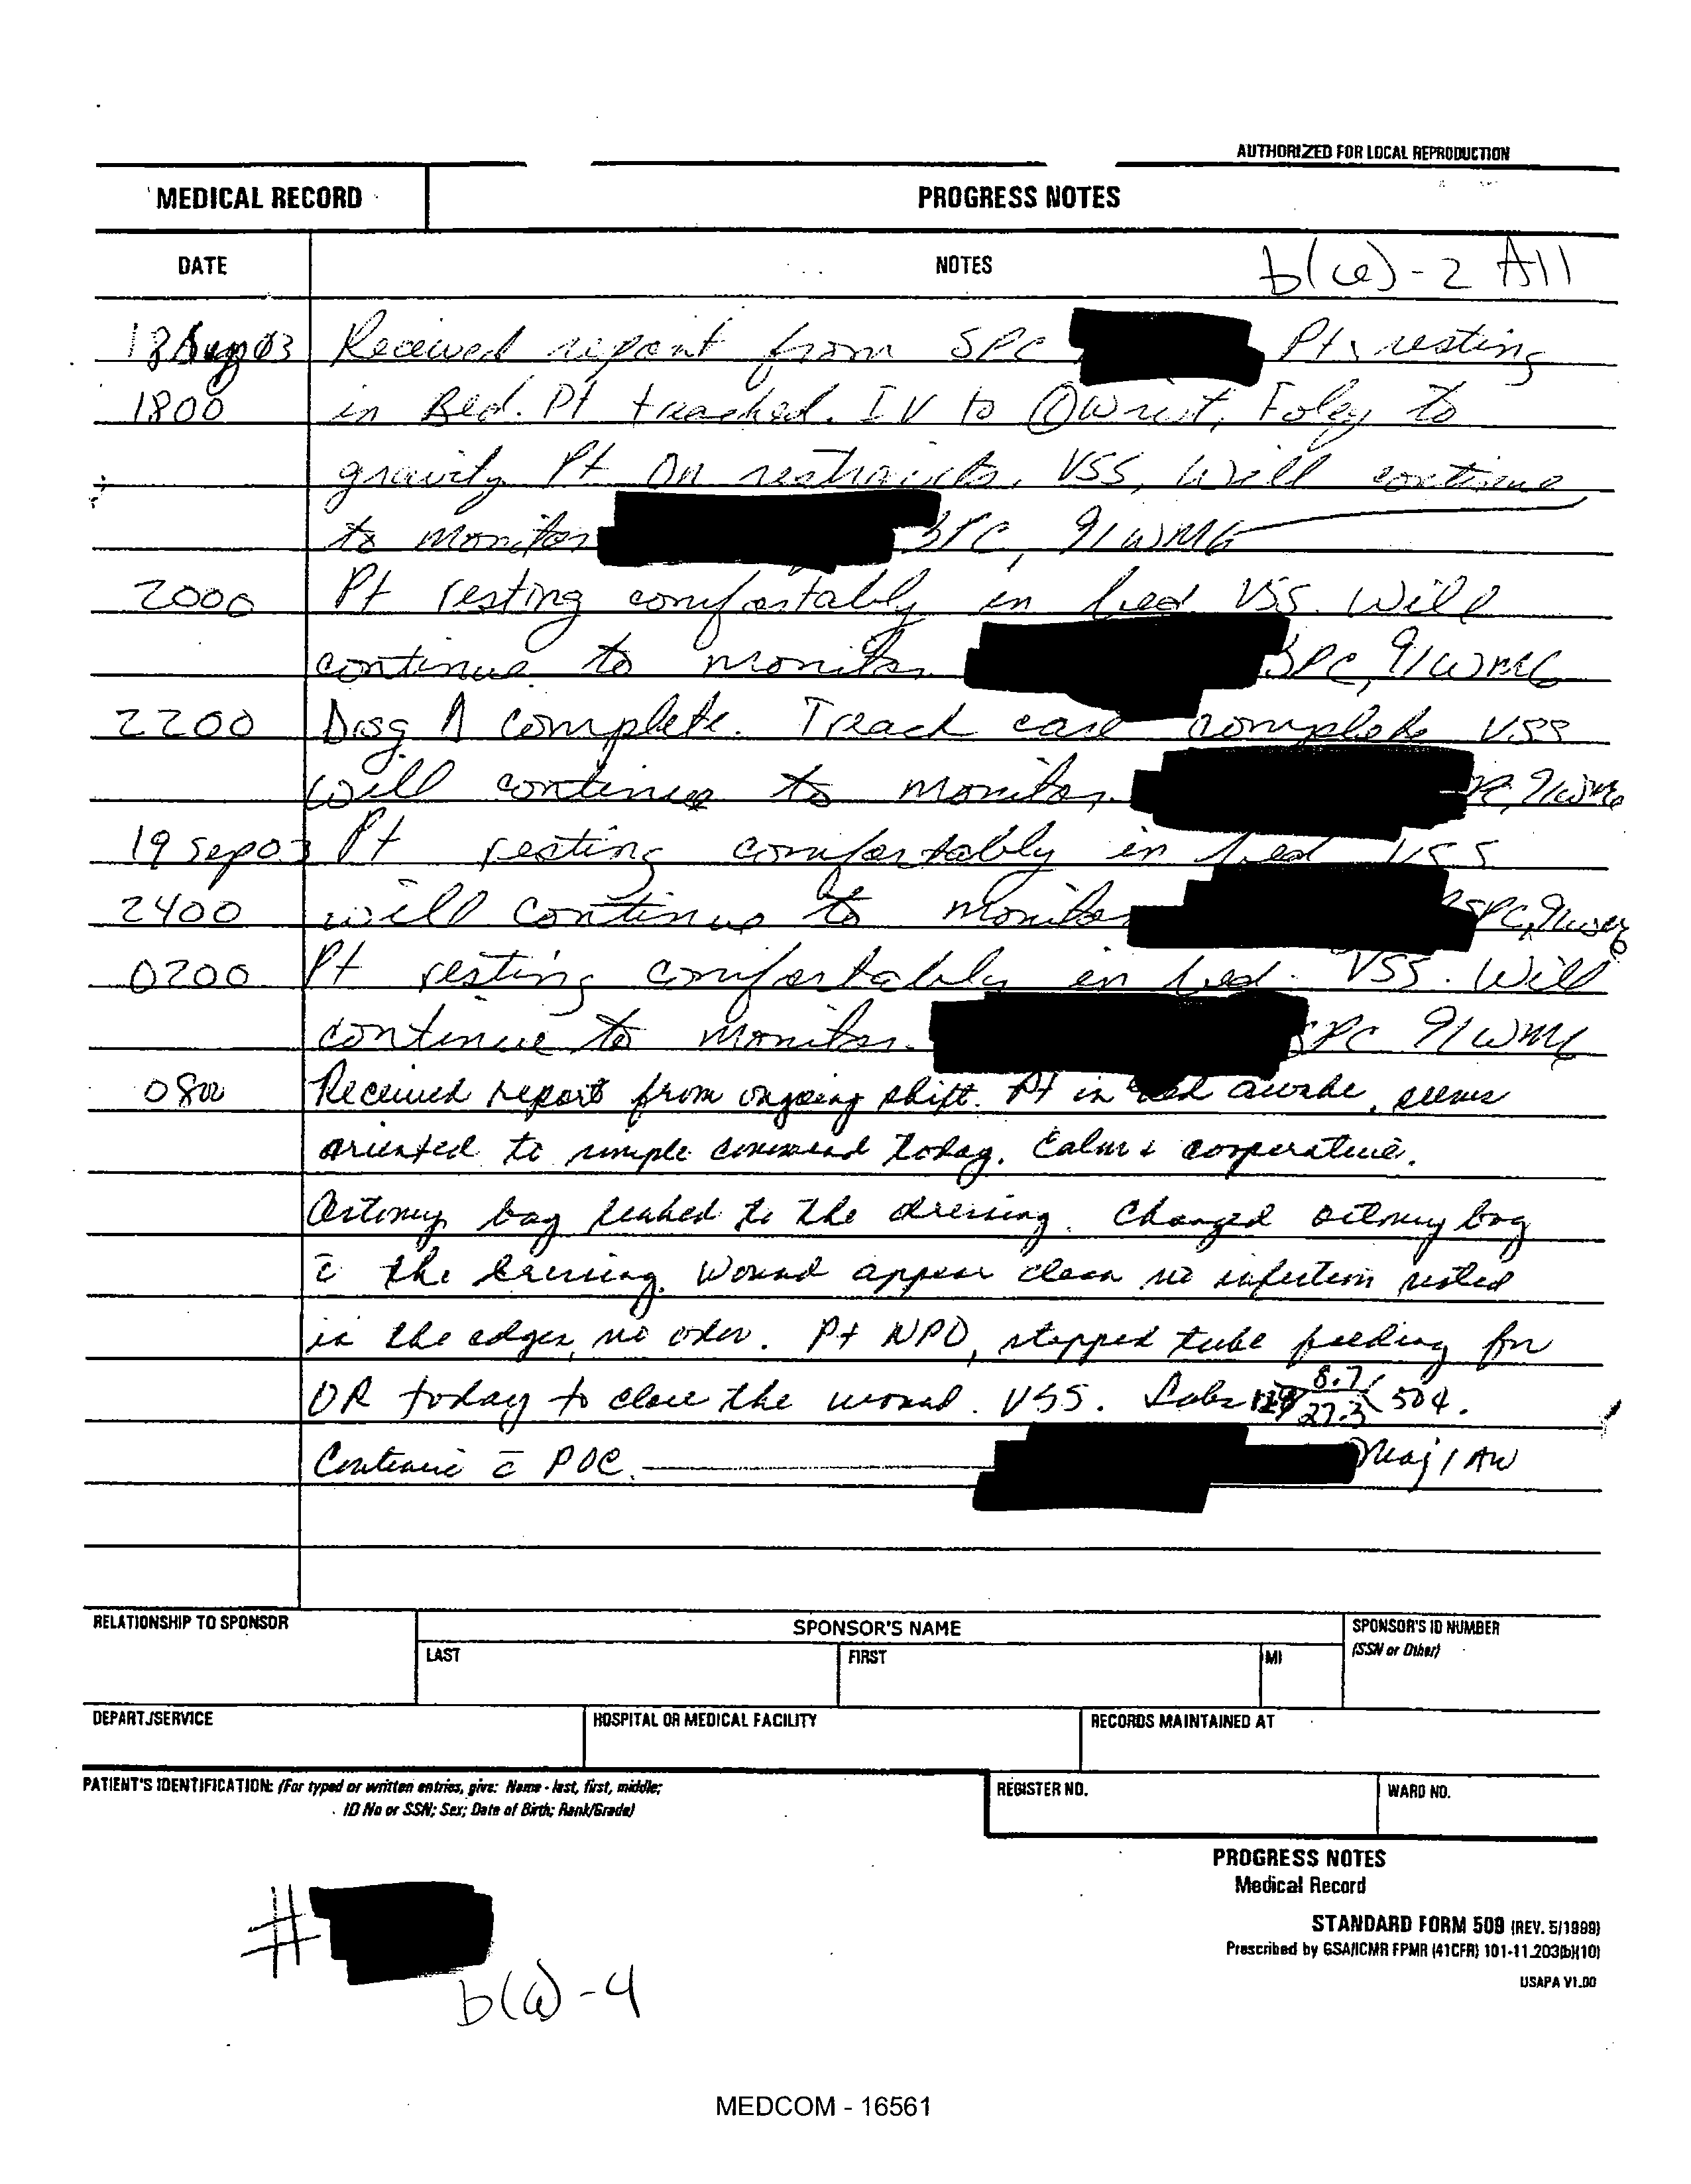 AUTHORIZED FOR LOCAL REPRODUCTION
MEDICAL RECORD PROGRESS NOTES
DATE NOTES b(6)-2 All
Received report from SPC Pt. resting
1800 in Bed. Pt trached. IV to wrist, Foley to
gravity Pt on restraints. VSS, Will continue
to monitor SPC, 91WM6
2000 Pt resting comfortably in bed. VSS. Will
continue to monitor. SPC, 91WM6
2200 Drsg Δ complete. Trach care complete VSS
will continue to monitor. 91WM6
19 Sep 03 Pt resting comfortably in bed VSS
2400 will continue to monitor SPC, 91WM6
0200 Pt resting comfortably in bed. VSS. Will
continue to monitor. SPC 91WM6
0800 Received report from ongoing shift. Pt in bed awake, seems
oriented to simple command today. Calm & cooperative.
Ostomy bag leaked to the dressing. Changed ostomy bag
c̄ the dressing. Wound appear clean no infection noted
in the edges, no odor. Pt NPO, stopped tube feeding for
OR today to close the wound. VSS. Labs 8.7 27.3 504.
Continue c̄ POC. Maj / AN
RELATIONSHIP TO SPONSOR SPONSOR'S NAME SPONSOR'S ID NUMBER
LAST FIRST MI (SSN or Other)
DEPART./SERVICE HOSPITAL OR MEDICAL FACILITY RECORDS MAINTAINED AT
PATIENT'S IDENTIFICATION: (For typed or written entries, give: Name - last, first, middle; REGISTER NO. WARD NO.
ID No or SSN; Sex; Date of Birth; Rank/Grade)
PROGRESS NOTES
Medical Record
STANDARD FORM 509 (REV. 5/1999)
Prescribed by GSA/ICMR FPMR (41CFR) 101-11.203(b)(10)
USAPA V1.00
#
b(6)-4
MEDCOM - 16561